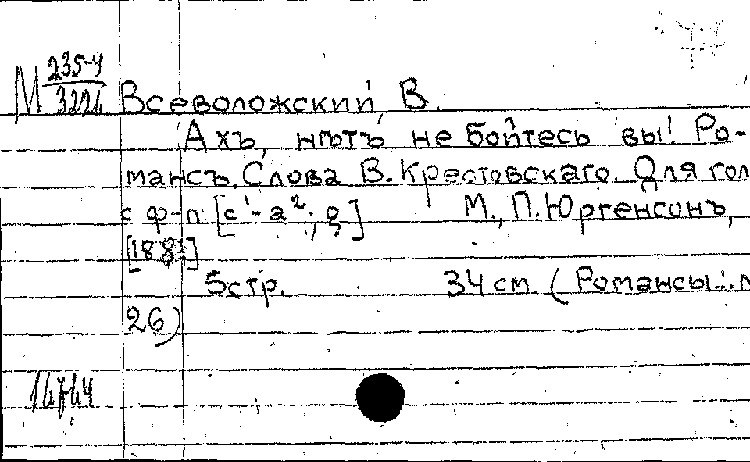 М 235-4
3226 Всеволожский, В.
Ахъ, нѣтъ не бойтесь вы! Ро-
мансъ. Слова В. Крестовскаго. Для гол
с ф-п [c'-a²; ] М., П. Юргенсонъ,
5 стр. 34 cm (Романсы
26)